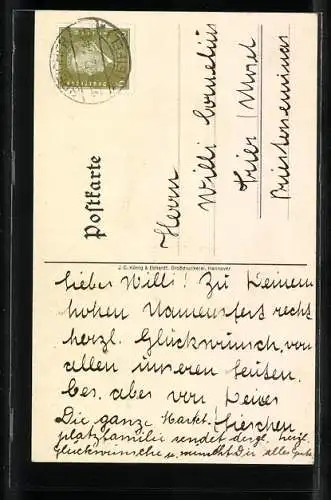 Postkarte
Herrn
Willi Cornelius
Trier / Mosel
Priesterseminar
J. C. König & Ebhardt, Großdruckerei, Hannover
Lieber Willi! Zu Deinem
hohen Namensfest recht
herzl. Glückwunsch, von
allen unseren Leuten.
bes. aber von Deiner
Lieschen
Die ganze Markt-
platzfamilie sendet herzl.
Glückwünsche u. wünscht Dir alles Gute